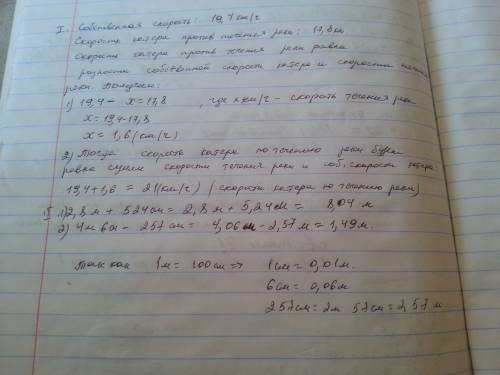 I. Собственная скорость: 19,4 км/г
Скорость катера против течения реки: 17,8 км
Скорость катера против течения реки равна
разности собственной скорости катера и скорости течения
реки. Получаем:
1) 19,4 - x = 17,8, где x км/г - скорость течения реки
x = 19,4 - 17,8
x = 1,6 (км/г)
2) Тогда скорость катера по течению реки будет
равна сумме скорости течения реки и соб. скорости катера
19,4 + 1,6 = 21 (км/г) (скорость катера по течению реки)
II 1) 2,8 м + 524 см = 2,8 м + 5,24 м = 8,04 м
2) 4м 6см - 257 см = 4,06 м - 2,57 м = 1,49 м.
Так как 1м = 100 см => 1 см = 0,01 м.
6 см = 0,06 м
257 см = 2м 57 см = 2,57 м